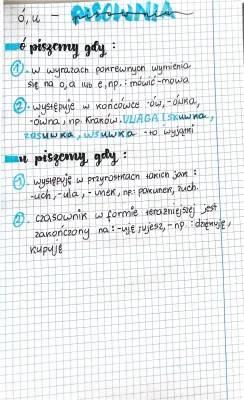 ó, u - PISOWNIA
ó piszemy gdy :
1 - w wyrazach pokrewnych wymienia
się na o, a lub e, np. : mówić - mowa
2 - występuje w końcówce -ów, -ówka,
-ówna, np. Kraków. UWAGA! SKUWKA,
ZASUWKA, WSUWKA - to wyjątki
u piszemy gdy :
1 - występuję w przyrostkach takich jak :
-uch, -ula, - unek, np: pakunek, zuch.
2 - czasownik w formie teraźniejszej jest
zakończony na : -uję, ujesz, - np. : dziękuję,
kupuję